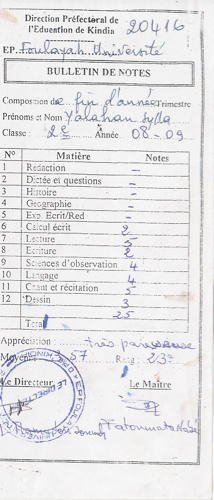 Direction Préfectoral de
l'Education de Kindia 20416
EP. Foulayah Université
BULLETIN DE NOTES
Composition de fin d'année Trimestre
Prénoms et Nom Yalahan Sylla
Classe : 2e Année 08-09
N° Matière Notes
1 Rédaction -
2 Dictée et questions -
3 Histoire -
4 Géographie -
5 Exp. Ecrit/Red -
6 Calcul écrit 2
7 Lecture 5
8 Ecriture 2
9 Sciences d'observation 4
10 Langage 4
11 Chant et récitation 5
12 Dessin 3
Total 25
Appréciation : très
Moyenne 3,57 Rang 2/37
Le Directeur Le Maître